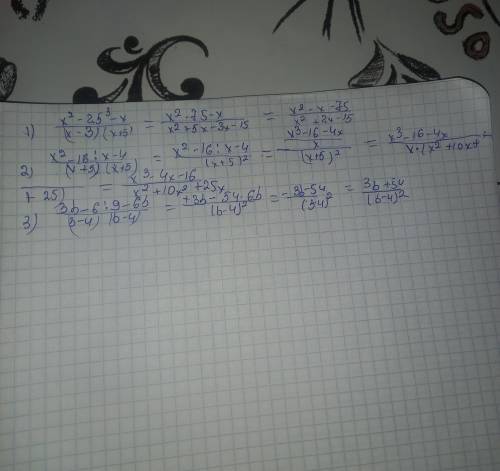 1) \frac{x² - 25³ - x}{(x - 3)(x+5)} = \frac{x² - 25 - x}{x² + 5x - 3x - 15} = \frac{x² - x - 25}{x² + 2x - 15}
2) \frac{x² - 16 : x - 4}{(x+5)(x+5)} = \frac{x² - 16 : x - 4}{(x+5)²} = \frac{\frac{x³ - 16 - 4x}{x}}{(x+5)²} = \frac{x³ - 16 - 4x}{x·(x² + 10x+
+ 25)} = \frac{x³ - 4x - 16}{x³ + 10x² + 25x}
3) \frac{3b - 6 : 9 - 6b}{(b-4)(b-4)} = \frac{+3b - 54 - 6b}{(b-4)²} = \frac{-3b - 54}{(b-4)²} = \frac{3b + 54}{(b-4)²}
SO